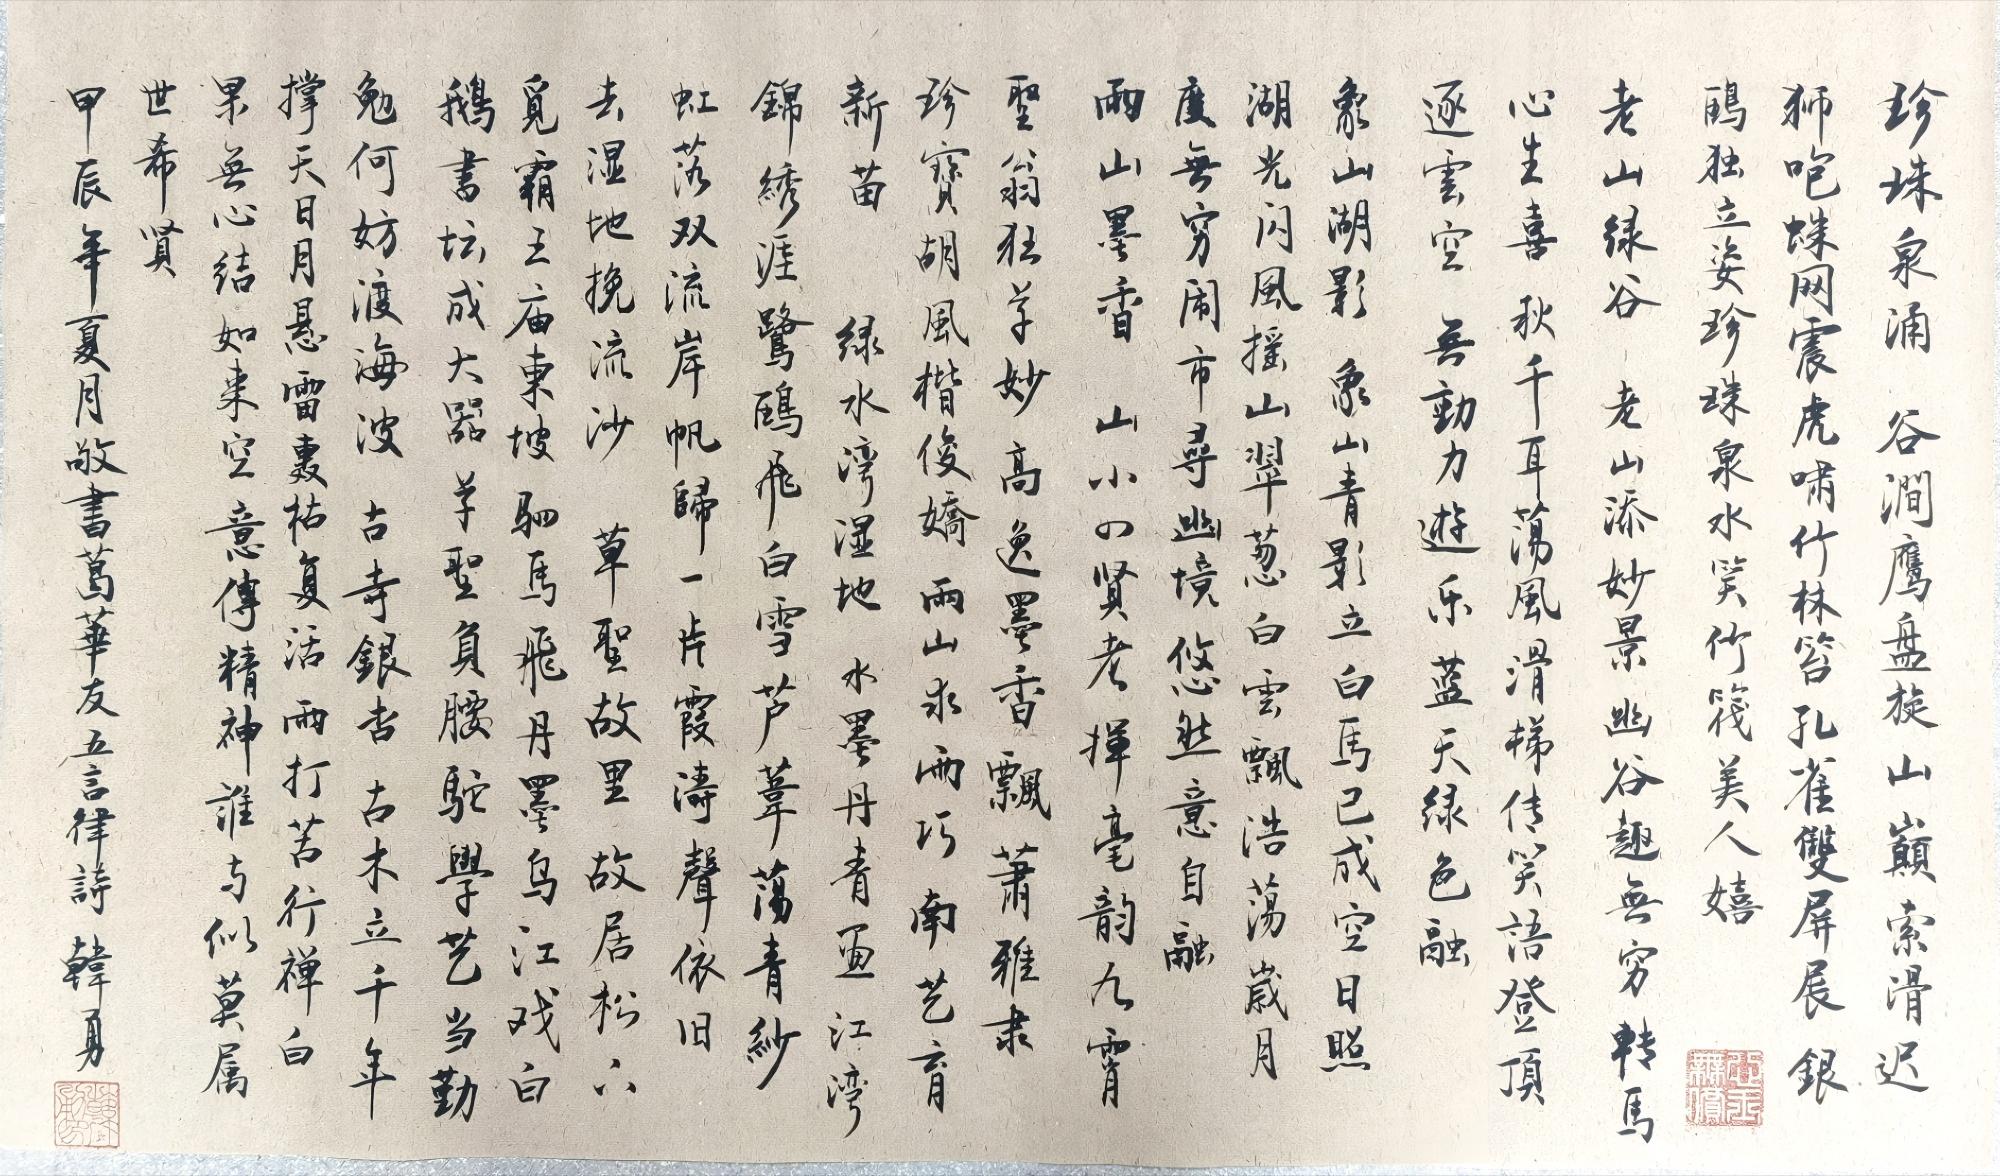 珍珠泉涌 谷澗鹰盘旋山巅索滑迟
狮咆蛛网震虎啸竹林箬孔雀雙屏展 銀
鷗独立姿珍珠泉水笑竹筏美人嬉
老山绿谷 老山添妙景幽谷趣無穷 轉馬
心生喜 秋千耳荡風滑梯传笑語登頂
逐雲空 無動力遊乐蓝天绿色融
象山湖影 象山青影立白馬已成空日照
湖光闪風摇山翠葱白雲飄浩荡歲月
度無穷闹市尋幽境悠然意自融
兩山墨香 山小四贤老揮毫韵九霄
聖翁狂草妙高逸墨香飄萧雅隶
珍寶胡風楷俊嬌雨山求兩巧南艺育
新苗 绿水湾湿地 水墨丹青画江湾
錦绣涯鷺鷗飛白雪芦葦荡青紗
虹落双流岸帆歸一片霞濤聲依旧
去湿地挽流沙 草聖故里故居松下
覓霸王庙東坡驷馬飛丹墨烏江戏白
鵝書坛成大器草聖負腰駝學艺当勤
勉何妨渡海波 古寺銀杏 古木立千年
撑天日月悬雷轰枯复活雨打苦行禅白
果無心結如来空意傳精神誰与似莫属
世希贤
甲辰年夏月敬書葛華友五言律詩 韓勇